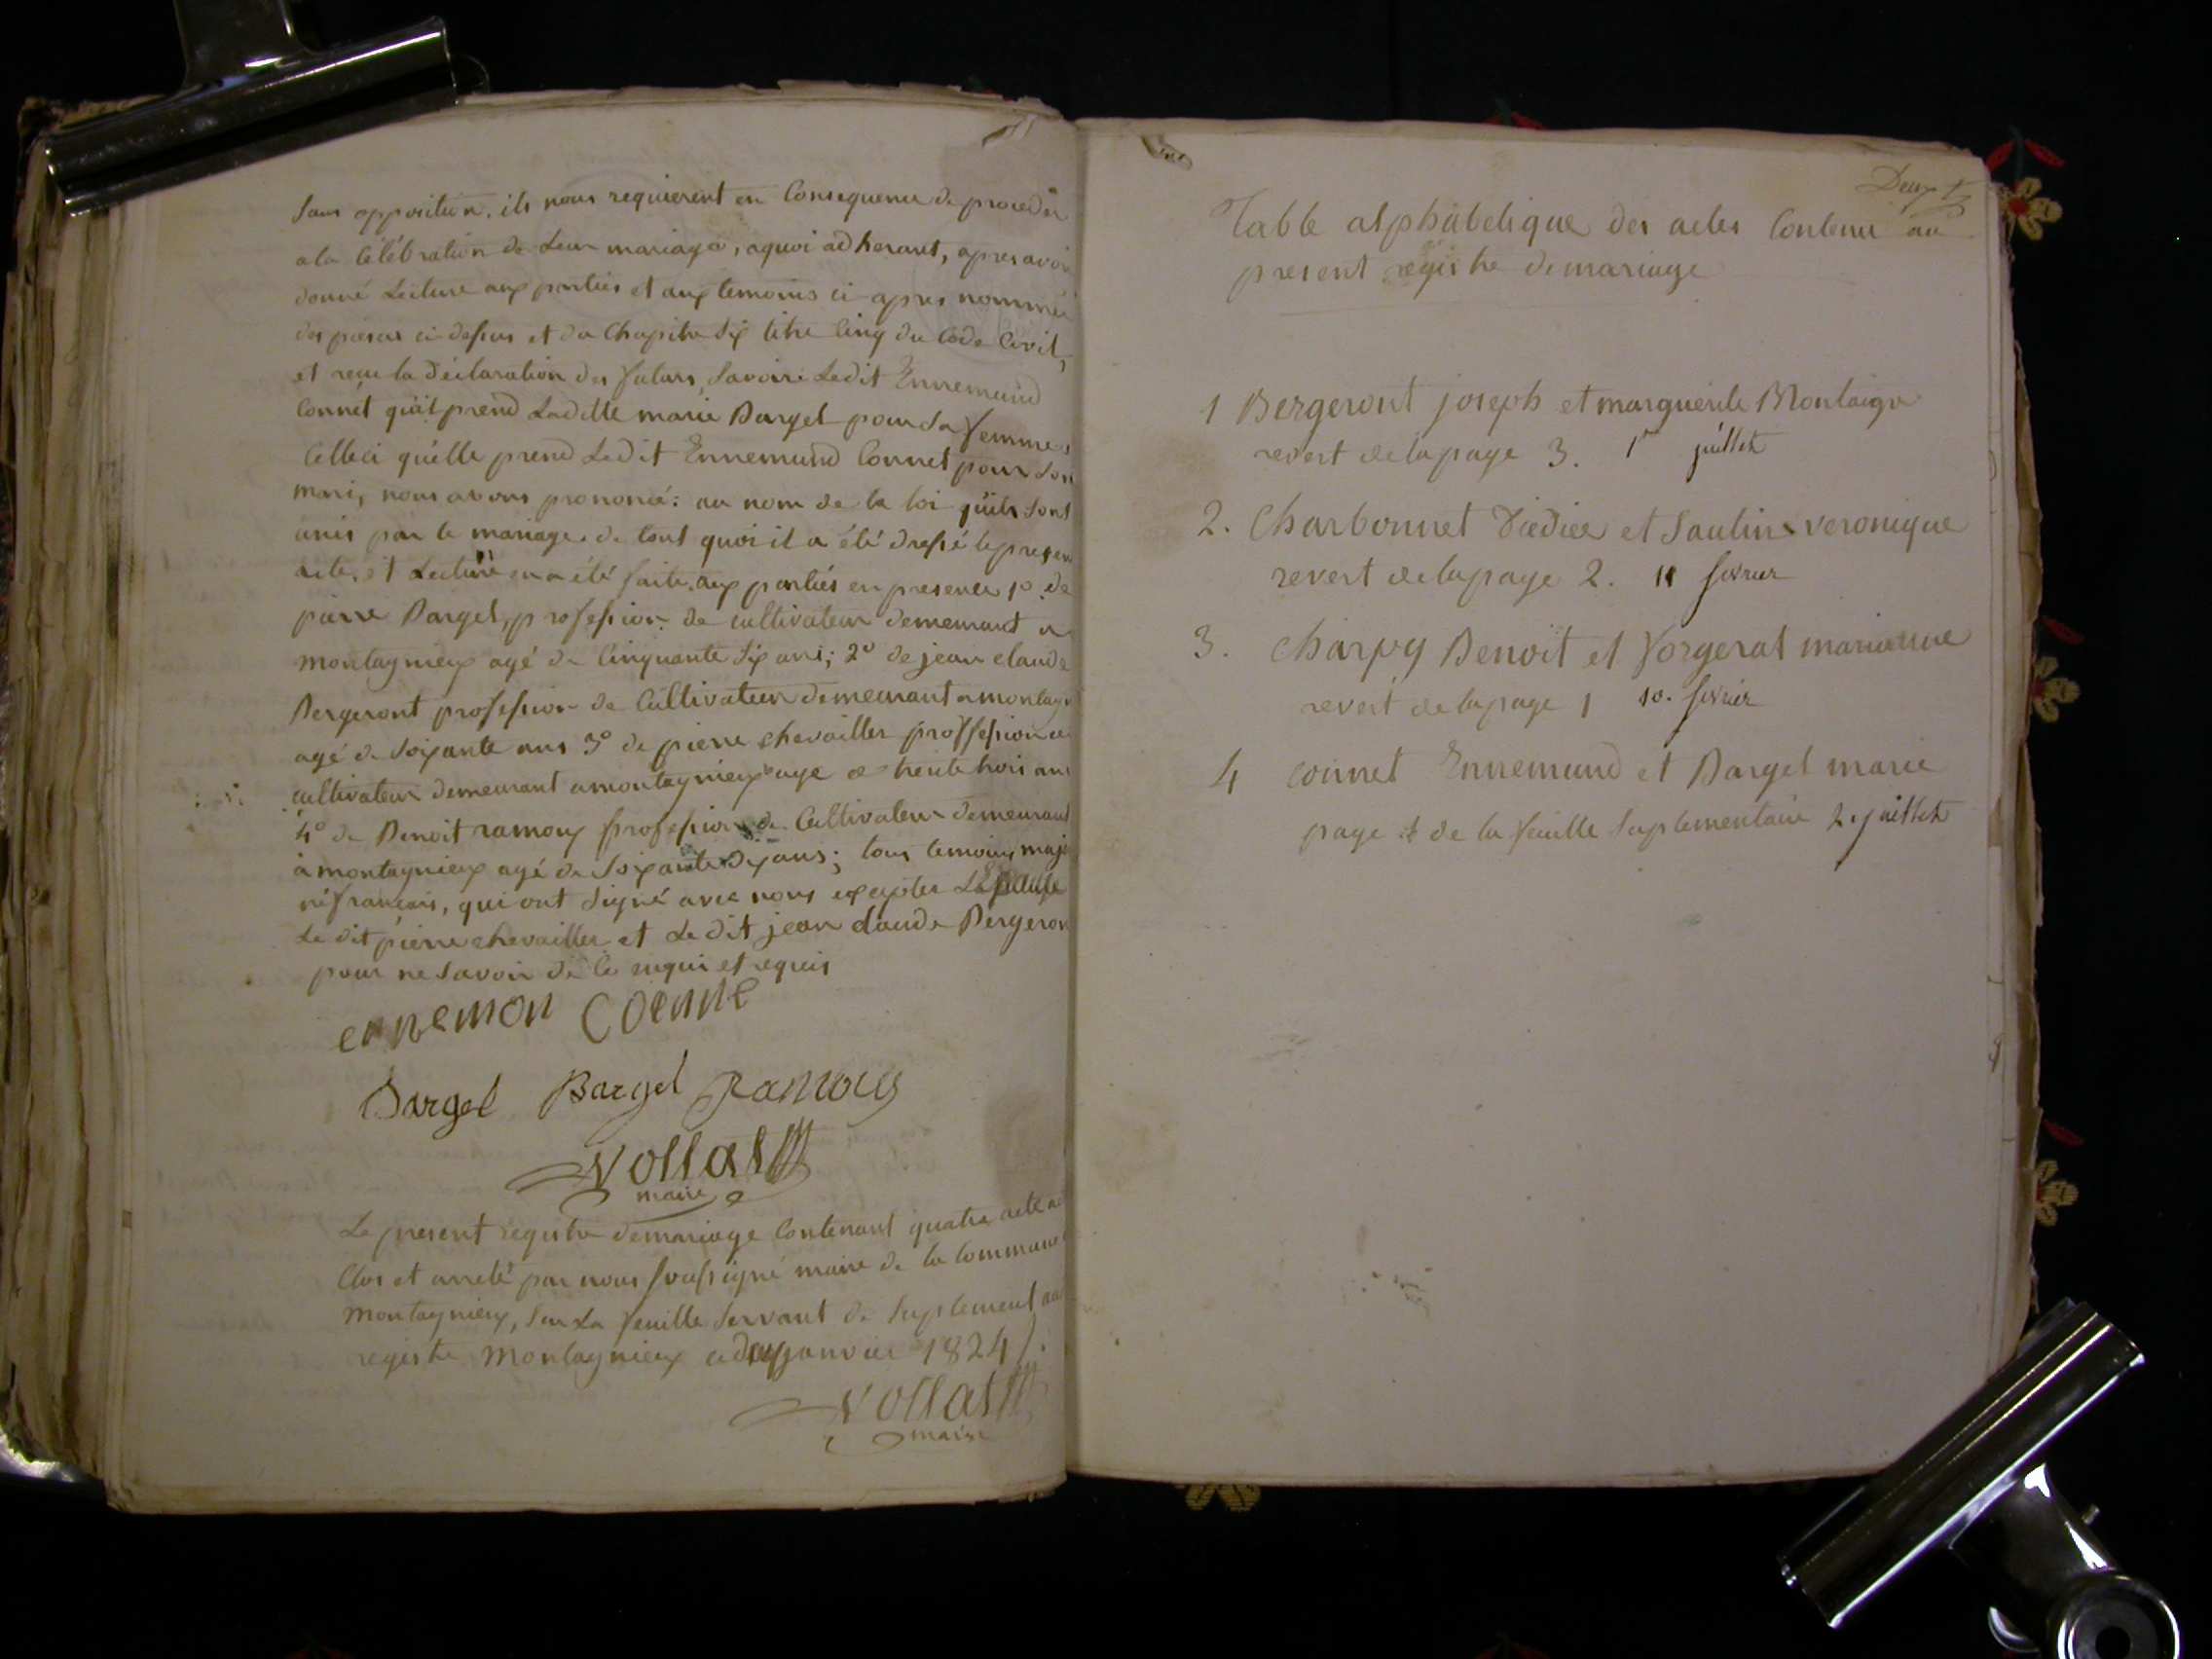 Sans opposition. ils nous requierent en Consequence de proceder
a la Célébration de Leur mariage, aquoi adherant, apres avoir
donné Lecture aux parties et aux temoins ci apres nommés
des pieces ci dessus et du Chapitre six titre Cinq du Code Civil,
et reçu la déclaration des futurs, Savoir Ledit Ennemund
Connet qu'il prend Ladite marie Bargel pour sa femme
Celleci qu'elle prend Ledit Ennemund Connet pour son
mari, nous avons prononcé: au nom de la loi qu'ils sont
unis par le mariage. de tout quoi il a été dressé le present
acte. et Lecture en a été faite aux partiés en presence 1º de
pierre Bargel, profession de cultivateur demeurant a
montagnieux agé de Cinquante six ans; 2º de jean claude
Bergeront profession de Cultivateur demeurant a montagn
agé de soixante ans 3º de pierre chevallier proffession de
cultivateur demeurant a montagnieux age de trente trois ans
4º de Benoit ramouy profession de Cultivateur demeurant
à montagnieux agé de soixante dix ans; tous temoins maj
né francais, qui ont signé avec nous exceptes
Le dit pierre chevallier et Le dit jean claude Bergeron
pour ne savoir de ce enquis et requis
ennemon Coenne
Bargel Bargel Ramouy
Vollat
maire
Le present registre de mariage Contenant quatre acte a
Clos et arreté par nous soussigné maire de la Commune
montagnieux, sur La feuille servant de suplement au
registre montagnieux janvier 1824
Vollat
maire
Deux
Table alphabetique des actes Contenu au
present registre de mariage
1 Bergeront joseph et marguerite Montaigu
revert de la page 3. 1er juillet
2. Charbonnet Didier et Saulin veronique
revert de la page 2. 11 fevrier
3. Charpy Benoit et Vorgerat marianne
revert de la page 1 10. fevrier
4 connet Ennemund et Bargel marie
page de la feuille suplementaire 2 juillet